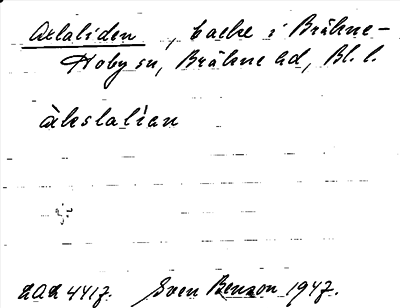 Axlaliden, backe i Bräkne-
Hoby sn, Bräkne hd, Bl. l.
àkslalian
LAL 4417. Sven Benson 1947.